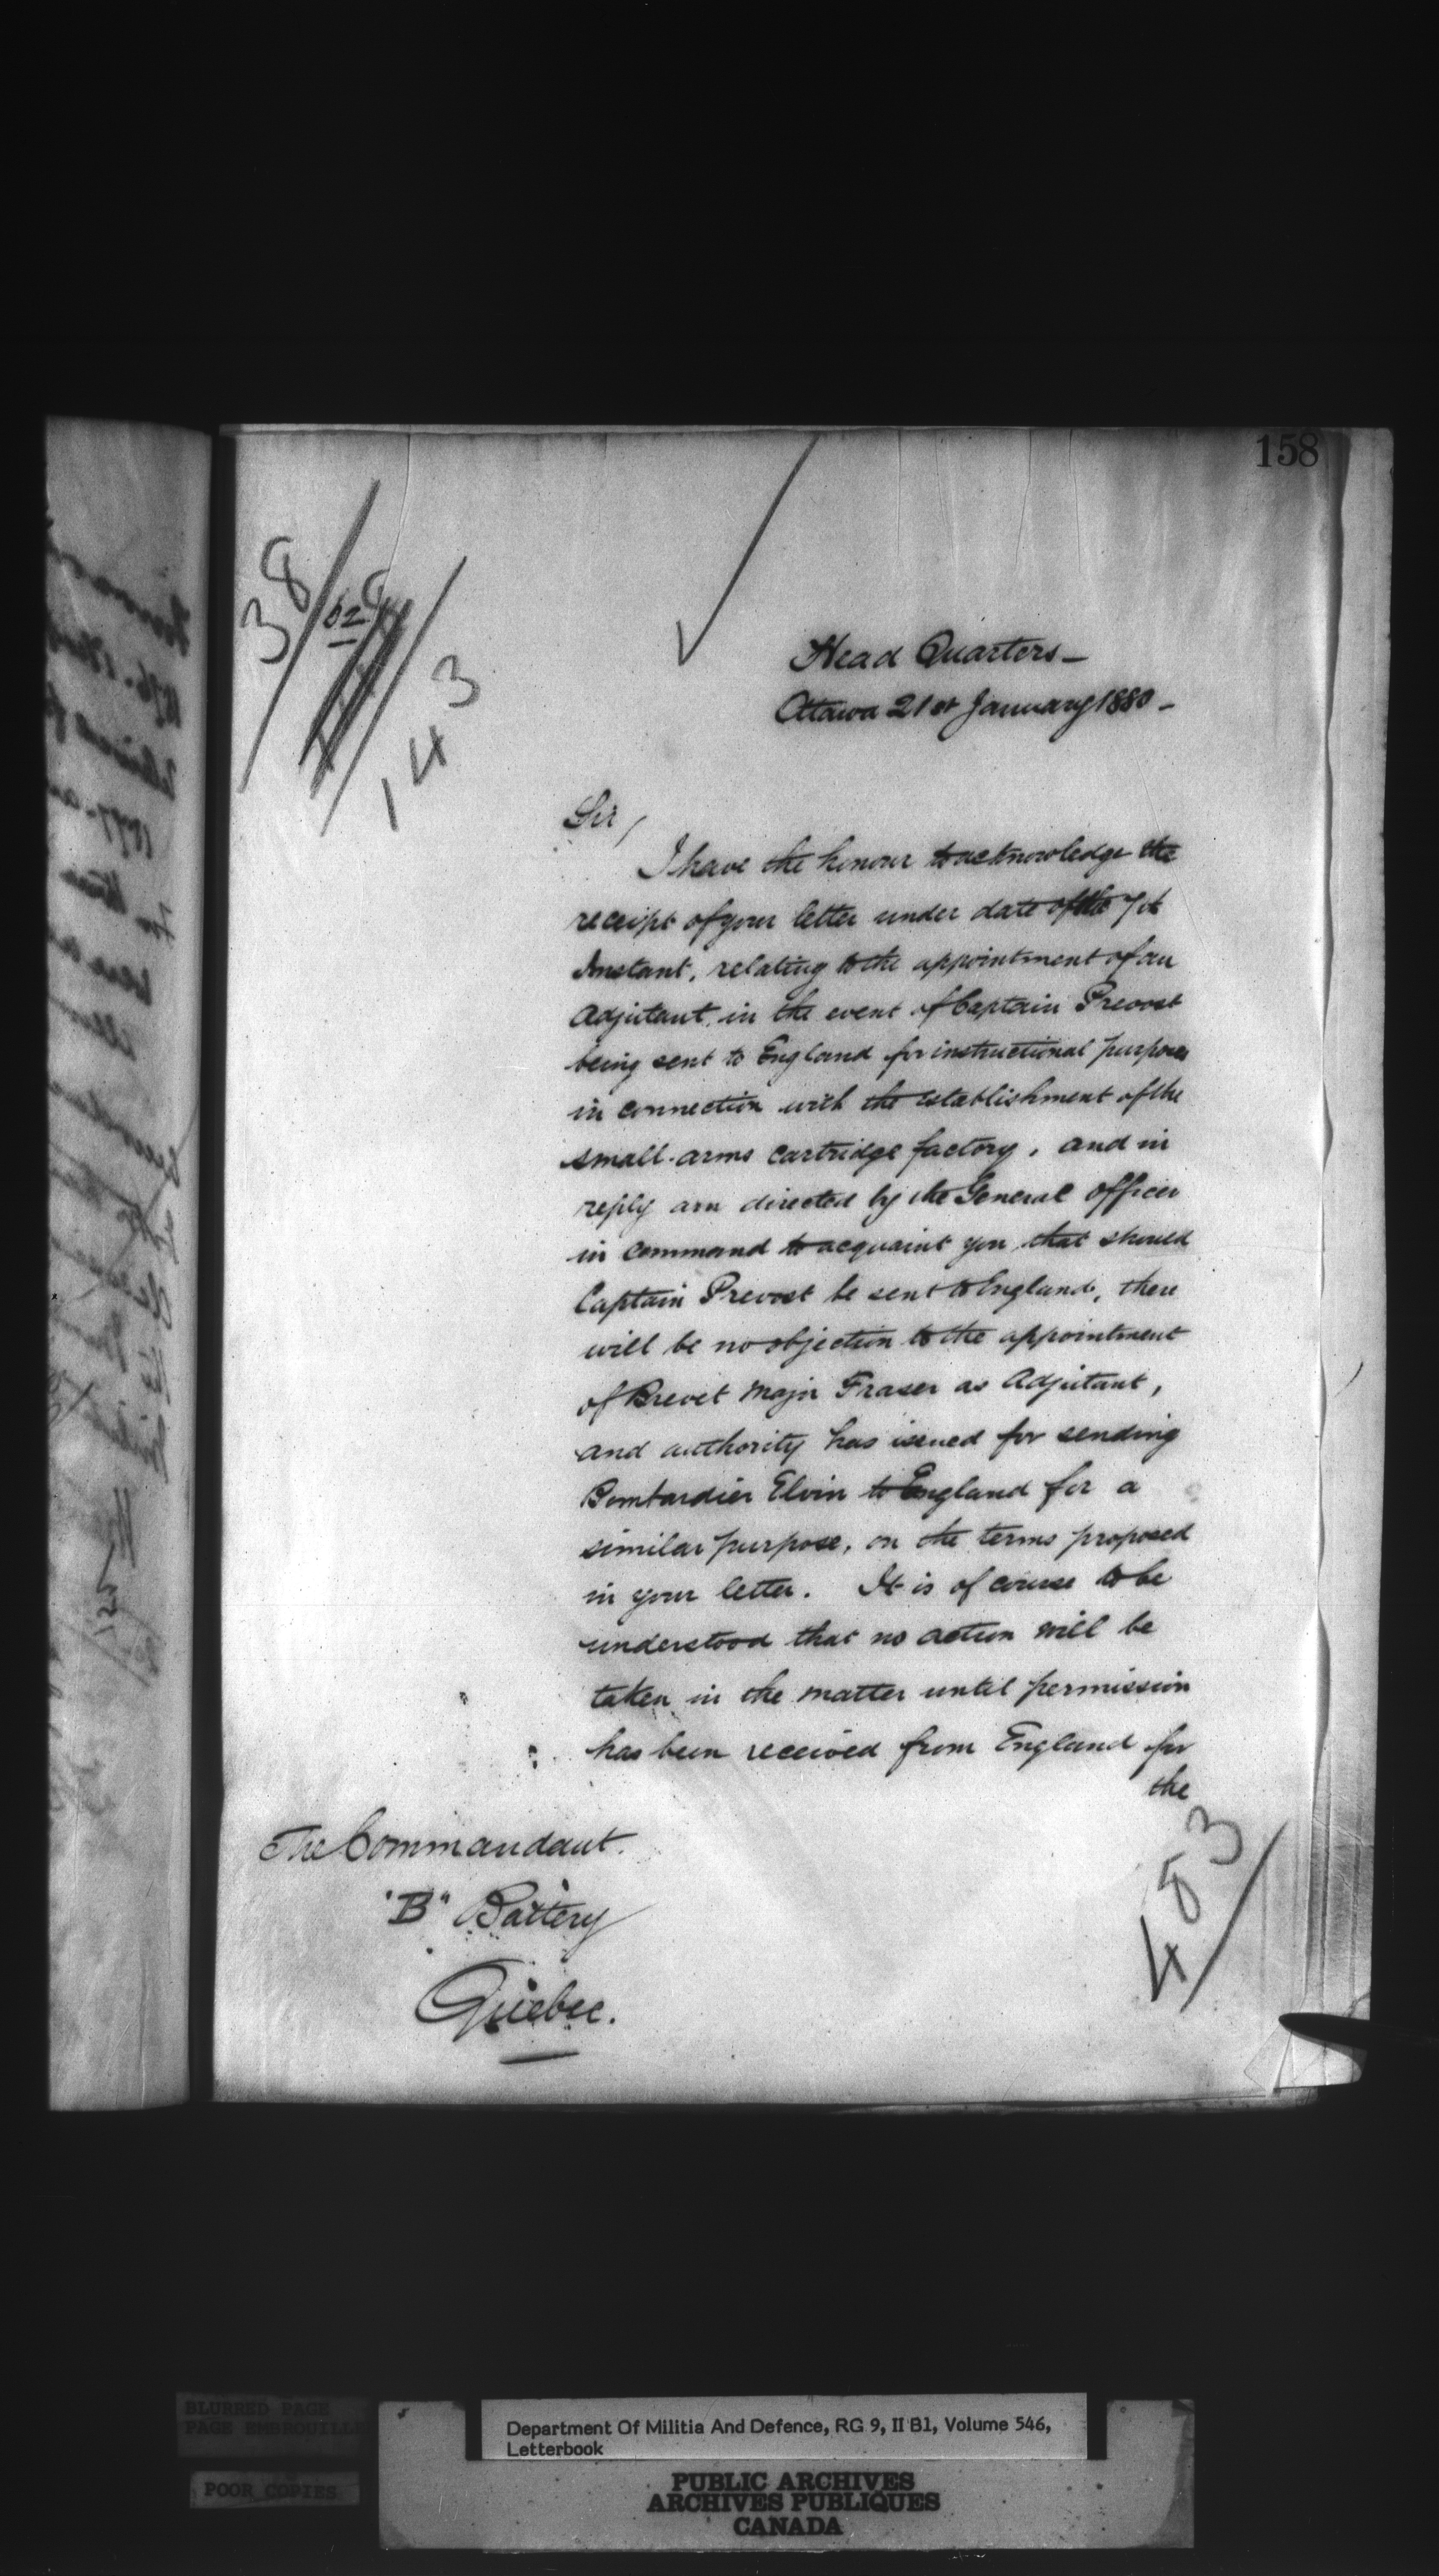 158
38
028
143
Head Quarters—
Ottawa 21st January 1880—
Sir,
I have the honour to acknowledge the
receipt of your letter under date of the 7th
Instant, relating to the appointment of an
Adjutant, in the event of Captain Prevost
being sent to England for instructional purposes
in connection with the establishment of the
small-arms cartridge factory, and in
reply am directed by the General Officer
in command to acquaint you that should
Captain Prevost be sent to England, there
will be no objection to the appointment
of Brevet Major Fraser as Adjutant,
and authority has issued for sending
Bombardier Elvin to England for a
similar purpose, on the terms proposed
in your letter. It is of course to be
understood that no action will be
taken in the matter until permission
has been received from England for
the
The Commandant.
"B" Battery
Quebec.
483
BLURRED PAGE
PAGE EMBROUILLE
POOR COPIES
Department Of Militia And Defence, RG 9, II B1, Volume 546,
Letterbook
PUBLIC ARCHIVES
ARCHIVES PUBLIQUES
CANADA